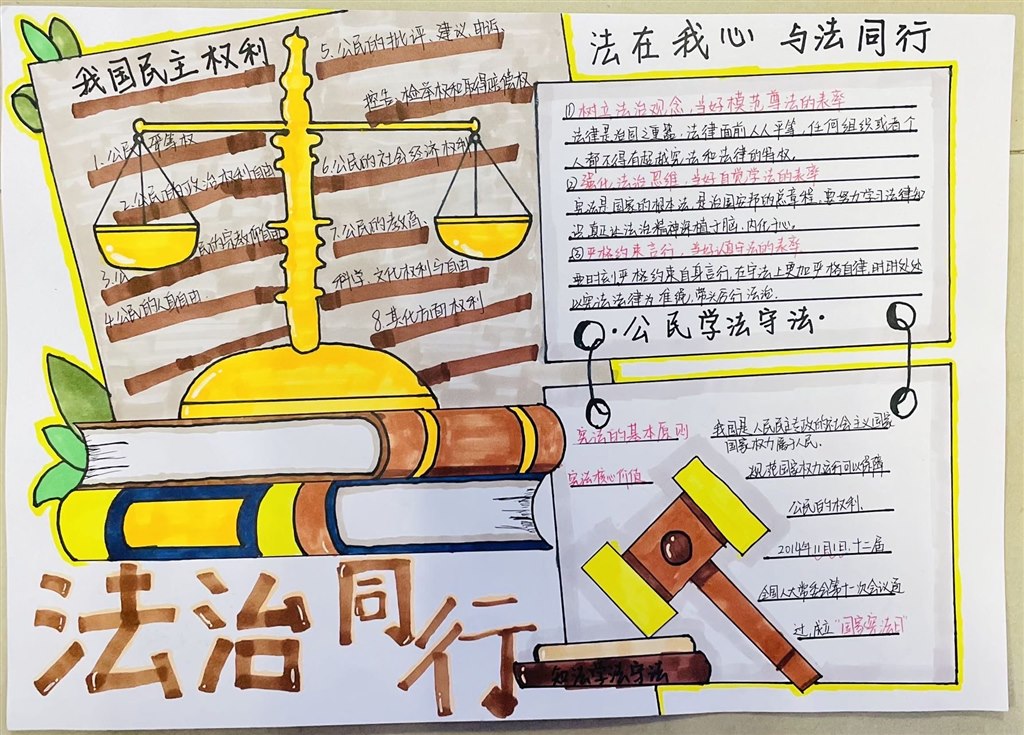 我国民主权利
1.公民平等权
2.公民的政治权利自由
3.公民的宗教信仰自由
4.公民的人身自由.
5.公民的批评、建议、申诉、
控告、检举权和取得赔偿权
6.公民的社会经济权利
7.公民的教育、
科学、文化权利与自由
8.其化方面权利
法在我心 与法同行
①树立法治观念,当好模范尊法的表率
法律是治国之重器.法律面前人人平等,任何组织或者个
人都不得有超越宪法和法律的特权.
②强化法治思维,当好自觉学法的表率
宪法是国家的根本法,是治国安邦的总章程,要努力学习法律知
识,真让法治精神深植于脑,内化于心。
③严格约束言行,当好遵守法的表率
要时刻严格约束自身言行,在守法上更加严格自律,时时处处
以宪法法律为准绳,带头厉行法治.
·公民学法守法·
宪法的基本原则
宪法核心价值
我国是人民民主专政的社会主义国家
国家权力属于人民.
规范国家权力运行可以保障
公民的权利.
2014年11月1日.十二届
全国人大常委会第十一次会议通
过,成立"国家宪法日"
知法学法守法
法治同行